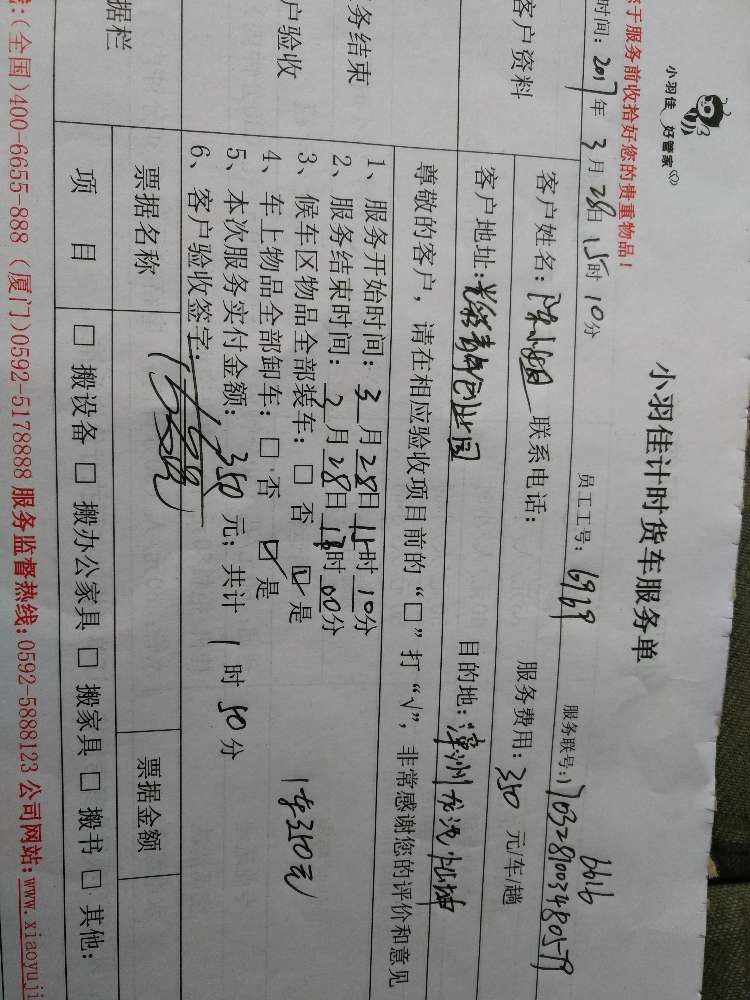 小羽佳 好管家
小羽佳计时货车服务单
于服务前收拾好您的贵重物品！
时间：2017年3月28日15时10分 员工工号：6969 服务联号：
6616
客户资料
客户姓名：陈小姐 联系电话： 服务费用：350 元/车/趟
客户地址：创业园 目的地：漳州龙
尊敬的客户，请在相应验收项目前的“□”打“√”，非常感谢您的评价和意见
务结束
户验收
1、服务开始时间：3月28日15时10分
2、服务结束时间：3月28日时00分
3、候车区物品全部装车：□ 否 ☑ 是
4、车上物品全部卸车：□ 否 ☑ 是
5、本次服务实付金额：350元；共计1时50分
1车350元
6、客户验收签字：
据栏
票据名称 票据金额
项 目 □ 搬设备 □ 搬办公家具 □ 搬家具 □ 搬书 □ 其他：
：(全国)400-6655-888 (厦门)0592-5178888 服务监督热线：0592-5888123 公司网站：www.xiaoyuji